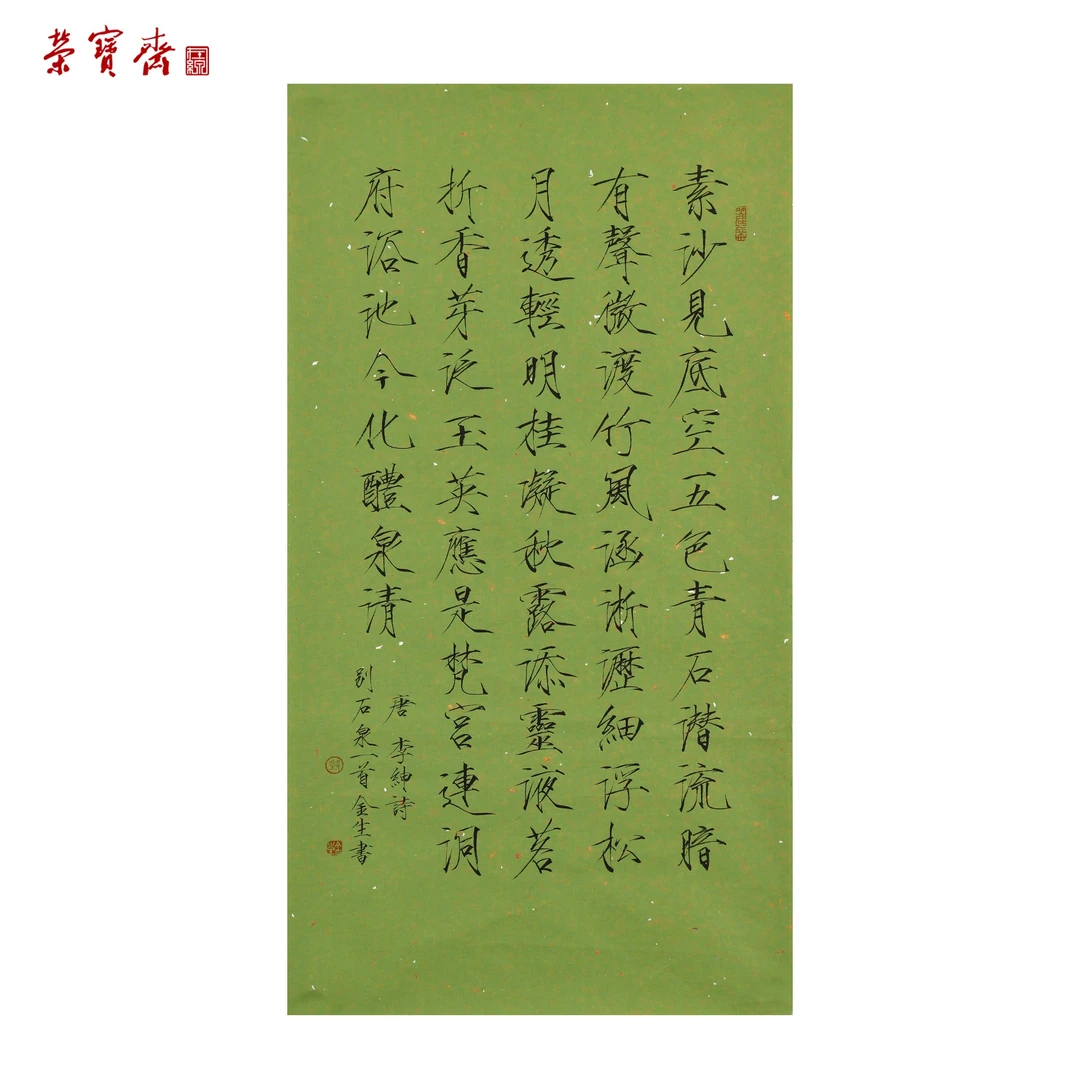 榮寶齋
素沙見底空五色青石潛流暗
有聲微渡竹風涵淅瀝細浮松
月透輕明桂凝秋露添靈液茗
折香芽泛玉英應是梵宮連洞
府浴池今化醴泉清
唐 李紳詩
別石泉一首金生書